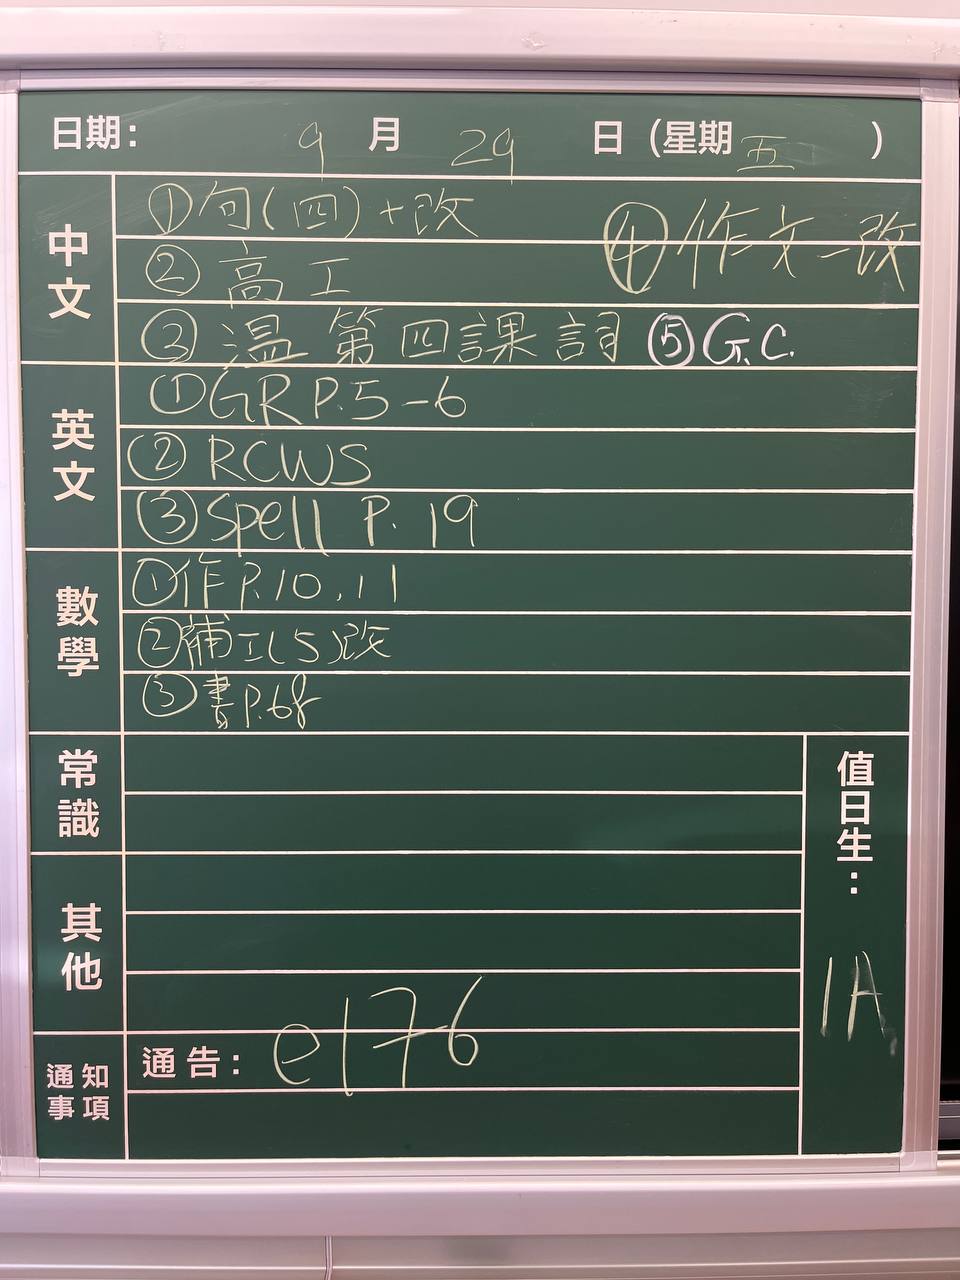 日期： 9 月 29 日 (星期 五 )
中文
①句(四)+改
④作文-改
②高工
③溫第四課詞 ⑤G.C.
英文
①GR P.5-6
②RCWS
③Spell P.19
數學
①作P.10,11
②補工(5)改
③書P.68
常識
其他
值日生：
1A
通知事項
通告： e176